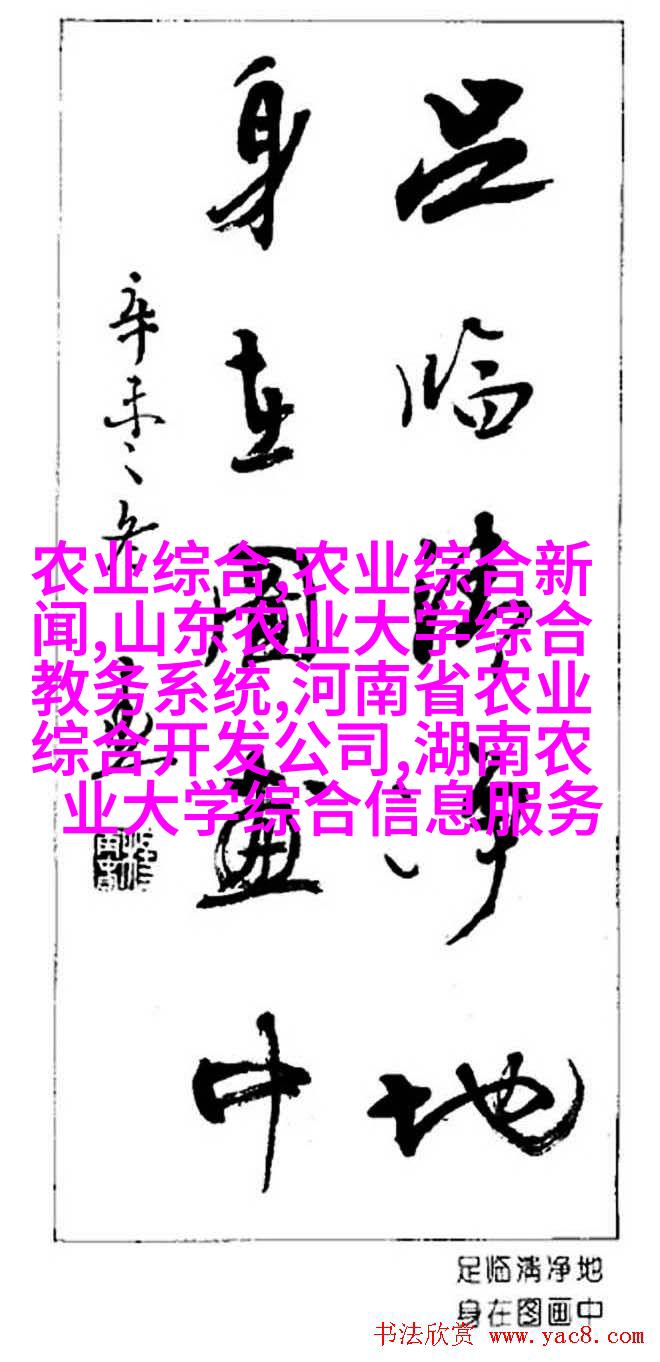 足临清净地
身在图画中
辛未之冬
农业综合,农业综合新
闻,山东农业大学综合
教务系统,河南省农业
综合开发公司,湖南农
业大学综合信息服务
足临清净地
身在图画中
书法欣赏 www.yac8.com